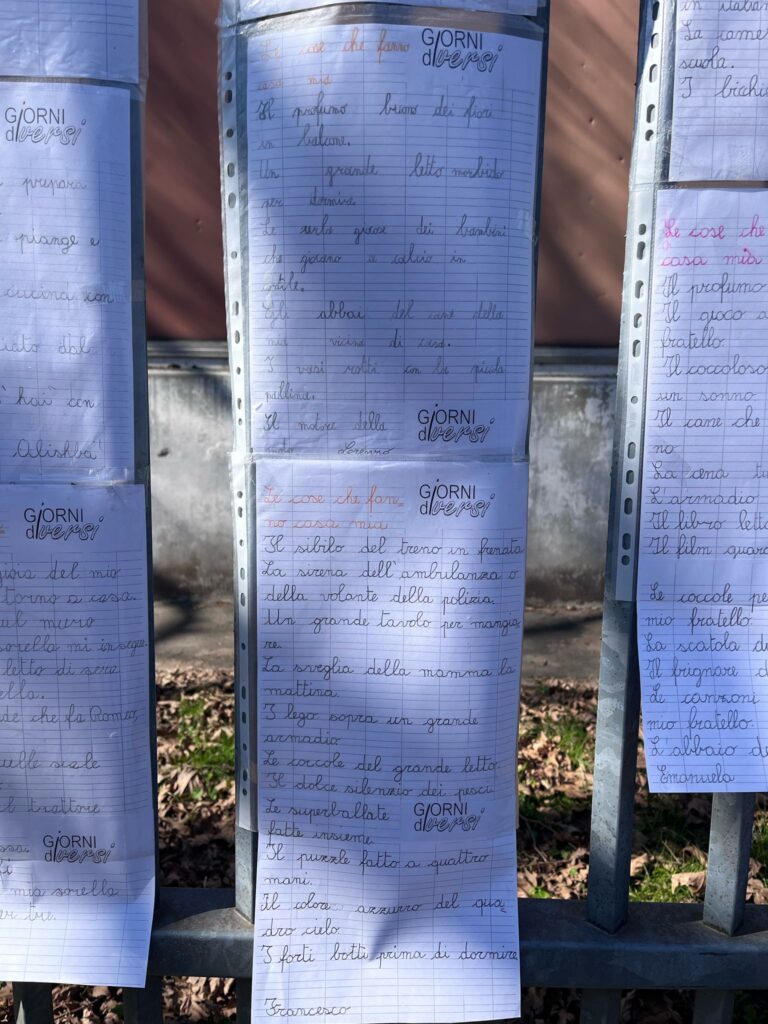 GiORNI
diversi
prepara
piange e
cucina con
dal
hai con
Alishba
GiORNI
diversi
gioia del mio
torno a casa.
sul muro
sorella mi insegue.
letto di sera
che fa Romeo,
sulle scale
il trattore
GiORNI
diversi
mia sorella
per tre.
Le cose che fanno
casa mia
GiORNI
diversi
Il profumo buono dei fiori
in balcone.
Un grande letto morbido
per dormire
Le urla gioiose dei bambini
che giocano a calcio in
cortile.
Gli abbai del cane della
mia vicina di casa.
I vasi rotti con la picola
pallina.
Il motore della
moto Lorenzo
GiORNI
diversi
Le cose che fan-
no casa mia
GiORNI
diversi
Il sibilo del treno in frenata
La sirena dell'ambulanza o
della volante della polizia.
Un grande tavolo per mangia-
re.
La sveglia della mamma la
mattina.
I lego sopra un grande
armadio
Le coccole del grande letto.
Il dolce silenzio dei pesci
Le superballate
fatte insieme.
GiORNI
diversi
Il puzzle fatto a quattro
mani.
Il colore azzurro del qua-
dro cielo
I forti botti prima di dormire
Francesco
in italian
La came
scuola.
I bichie
Le cose che
casa mia
Il profumo
Il gioco a
fratello.
Il coccoloso
un sonno
Il cane che
no
La cena tu
L'armadio
Il libro letto
Il film guard
Le coccole pe
mio fratello.
La scatola de
Il brignare d
Le canzoni
mio fratello.
L'abbaio de
Emanuela